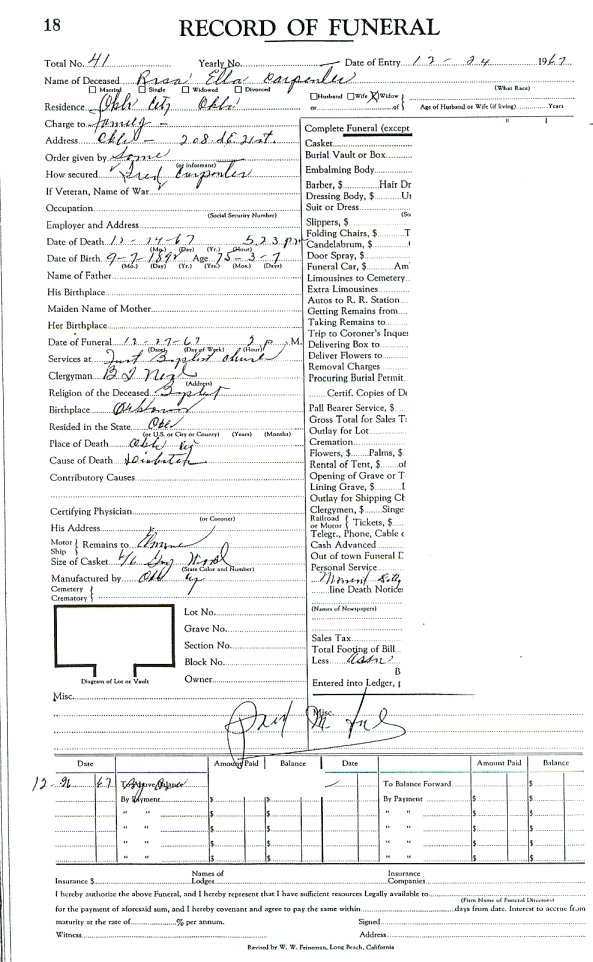 18
RECORD OF FUNERAL
Total No. 41 Yearly No. Date of Entry 12 - 24 1967
Name of Deceased Rosa Ella Carpenter
Married Single Widowed Divorced
Husband Wife X Widow (What Race)
or of
Age of Husband or Wife (if living) Years
Residence Okla City Okla
Charge to Family -
Address Okla - 208. SE. 21st.
Order given by Same
(or Informant)
How secured Fred Carpenter
If Veteran, Name of War
Occupation
(Social Security Number)
Employer and Address
Date of Death 12 - 24 - 67 5 23 pm
(Mo.) (Day) (Yr.) (Hour)
Date of Birth 9-7-1892 Age 75-3-7
(Mo.) (Day) (Yr.) (Yrs.) (Mon.) (Days)
Name of Father
His Birthplace
Maiden Name of Mother
Her Birthplace
Date of Funeral 12 - 27 - 67 2 p M.
(Date) (Day of Week) (Hour)
Services at First Baptist Church
Clergyman B J Neal
(Address)
Religion of the Deceased Baptist
Birthplace Arkansas
Resided in the State Okla
(or U.S. or City or County) (Years) (Months)
Place of Death Okla City
Cause of Death
Contributory Causes
Certifying Physician
(or Coroner)
His Address
Motor
Ship
Remains to
Size of Casket 6/6 Gray
(State Color and Number)
Manufactured by Okla
Cemetery
Crematory
Lot No.
Grave No.
Section No.
Block No.
Owner
Diagram of Lot or Vault
Misc.
Complete Funeral (except
Casket
Burial Vault or Box
Embalming Body
Barber, $ Hair Dr
Dressing Body, $ Ui
Suit or Dress
Slippers, $
Folding Chairs, $ T
Candelabrum, $
Door Spray, $
Funeral Car, $ Am
Limousines to Cemetery
Extra Limousines
Autos to R. R. Station
Getting Remains from
Taking Remains to
Trip to Coroner's Inques
Delivering Box to
Deliver Flowers to
Removal Charges
Procuring Burial Permit
Certif. Copies of De
Pall Bearer Service, $
Gross Total for Sales T
Outlay for Lot
Cremation
Flowers, $ Palms, $
Rental of Tent, $ of
Opening of Grave or T
Lining Grave, $
Outlay for Shipping Ch
Clergymen, $ Singe
Railroad
or Motor
Tickets, $
Telegr., Phone, Cable c
Cash Advanced
Out of town Funeral D
Personal Service
line Death Notices
(Names of Newspapers)
Sales Tax
Total Footing of Bill
Less
B
Entered into Ledger, p
Misc.
Date Amount Paid Balance Date Amount Paid Balance
12-26 67 To Above Balance To Balance Forward $
By Payment $ $ By Payment $ $
" " $ $ " " $ $
" " $ $ " " $ $
" " $ $ " " $ $
" " $ $ " " $ $
Insurance $ Names of Lodges Insurance Companies
I hereby authorize the above Funeral, and I hereby represent that I have sufficient resources Legally available to
(Firm Name of Funeral Directors)
for the payment of aforesaid sum, and I hereby covenant and agree to pay the same within days from date. Interest to accrue from
maturity at the rate of % per annum. Signed
Witness Address
Revised by W. W. Feineman, Long Beach, California